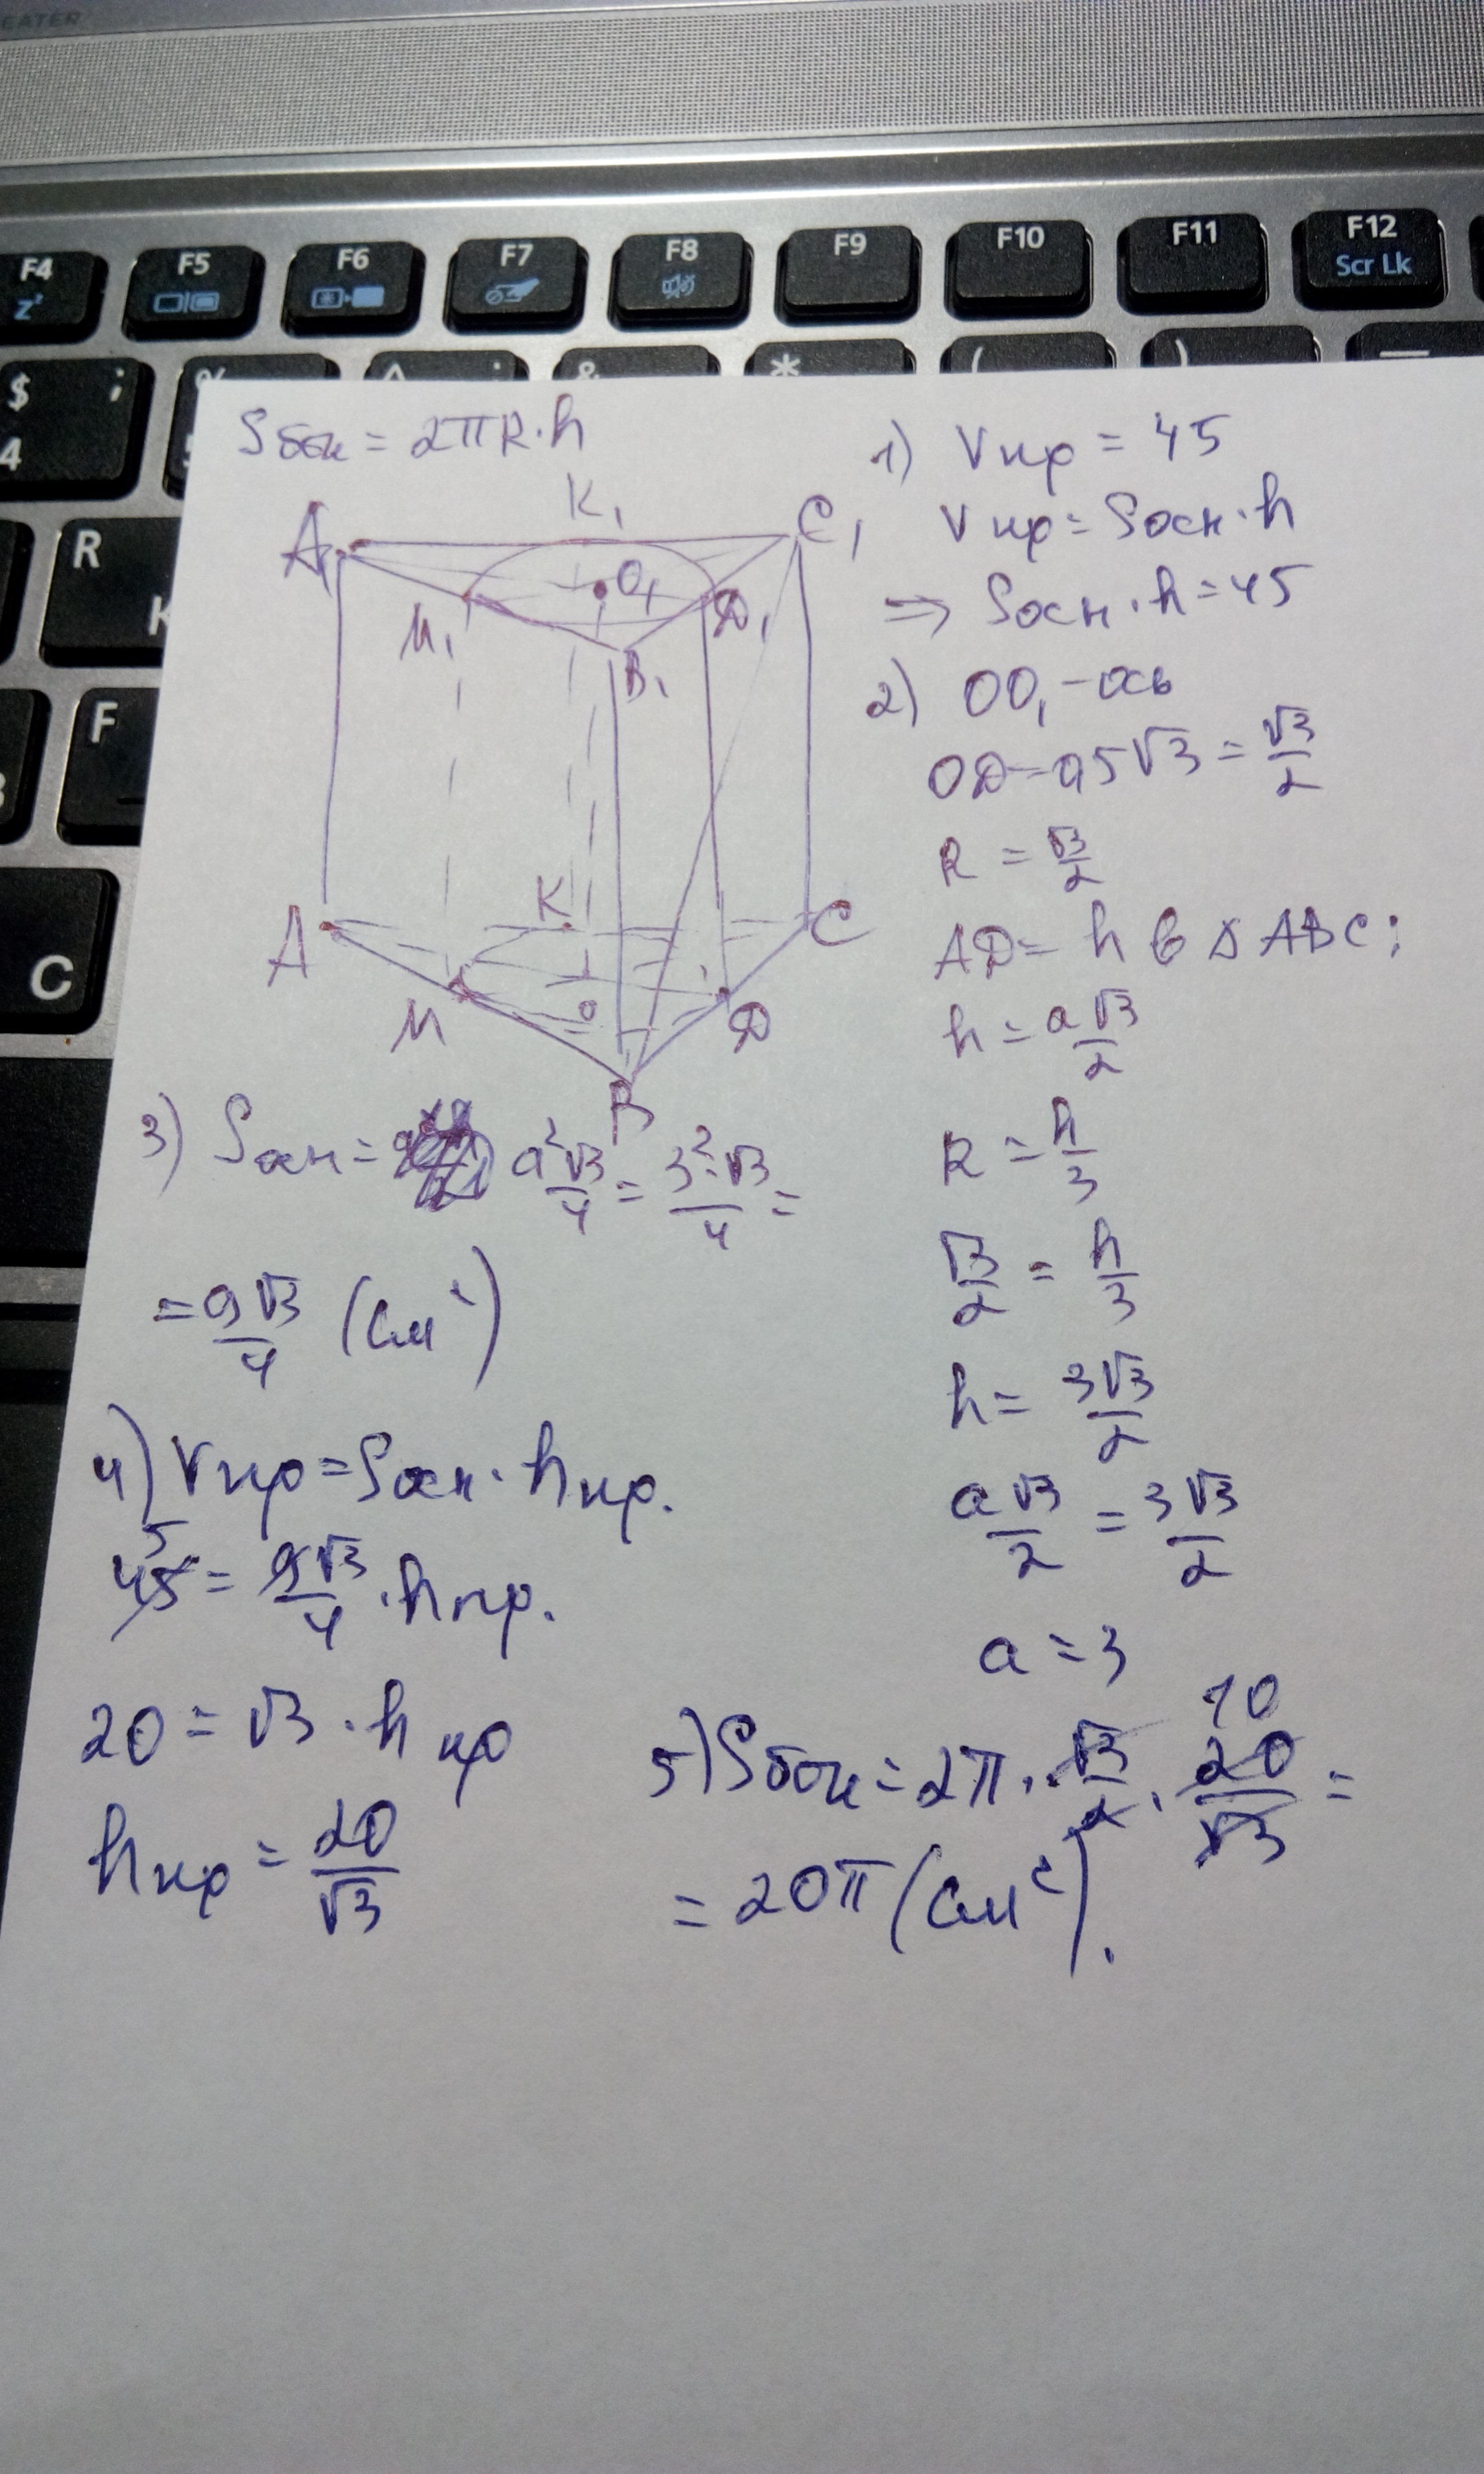 EATER
F4
F5
F6
F7
F8
F9
F10
F11
F12
Scr Lk
Z
$ ;
4
%
^ :
&
*
(
)
R
K
F
C
Sбок = 2πR·h
K₁
A₁
C₁
O₁
M₁
D₁
B₁
A
K
C
M
O
D
B
1) Vпр = 45
Vпр = Sосн·h
=> Sосн·h = 45
2) OO₁ - ось
OD = 0,5√3 = √3/2
R = √3/2
AD = h в △ABC:
h = a√3/2
R = h/3
√3/2 = h/3
h = 3√3/2
a√3/2 = 3√3/2
a = 3
3) Sосн = a²√3/4 = 3²·√3/4 =
= 9√3/4 (см²)
4) Vпр = Sосн·hпр.
5
45 = 9√3/4 · hпр.
20 = √3·hпр
hпр = 20/√3
5) Sбок = 2π · √3/2 · 20/√3 =
10
= 20π (см²).